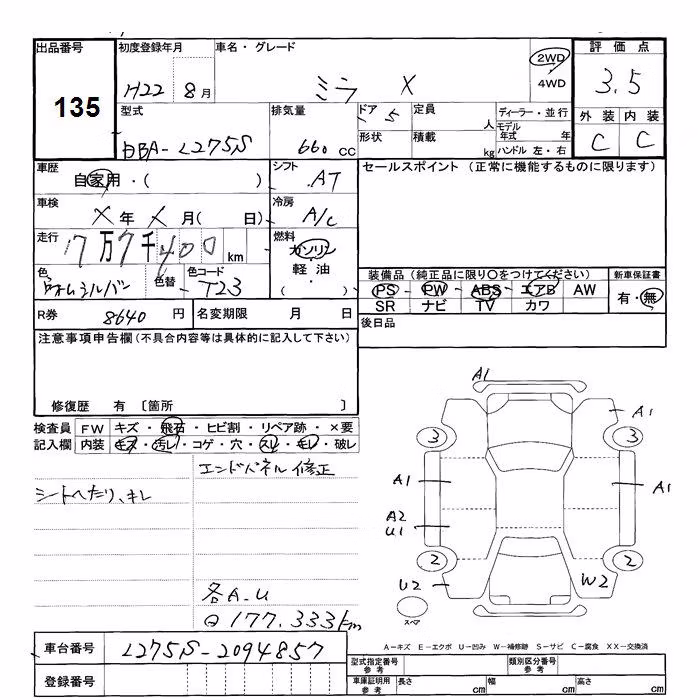 出品番号 初度登録年月 車名・グレード 評価点
135
H22 8月 ミラ X 2WD 4WD 3.5
型式 排気量 ドア 5 定員 人 ディーラー・並行 外装 内装
DBA-L275S 660cc 形状 積載 kg モデル年式 年 ハンドル 左・右 C C
車歴 自家用・( ) シフト AT セールスポイント (正常に機能するものに限ります)
車検 X年 X月( 日) 冷房 A/C
走行 7万7千400km 燃料 ガソリン 軽油・( )
色 色替 色コード T23
装備品(純正品に限り○をつけてください) 新車保証書
PS・PW・ABS・エアB AW 有・無
SR ナビ TV カワ
R券 8640円 名変期限 月 日 後日品
注意事項申告欄(不具合内容等は具体的に記入して下さい)
修復歴 有 〔箇所 〕
検査員 FW キズ・飛石・ヒビ割・リペア跡・×要
記入欄 内装 キズ・汚レ・コゲ・穴・スレ・キレ・破レ
エンドパネル修正
シートへたり、キレ
各A.U
177.333km
A1
A1
3 3
A1 A1
A2
U1
2 2
U2 W2
スペア
A-キズ E-エクボ U-凹み W-補修跡 S-サビ C-腐食 XX-交換済
車台番号 L275S-2094857
登録番号
型式指定番号 参考 類別区分番号 参考
車庫証明用 参考 長さ cm 幅 cm 高さ cm